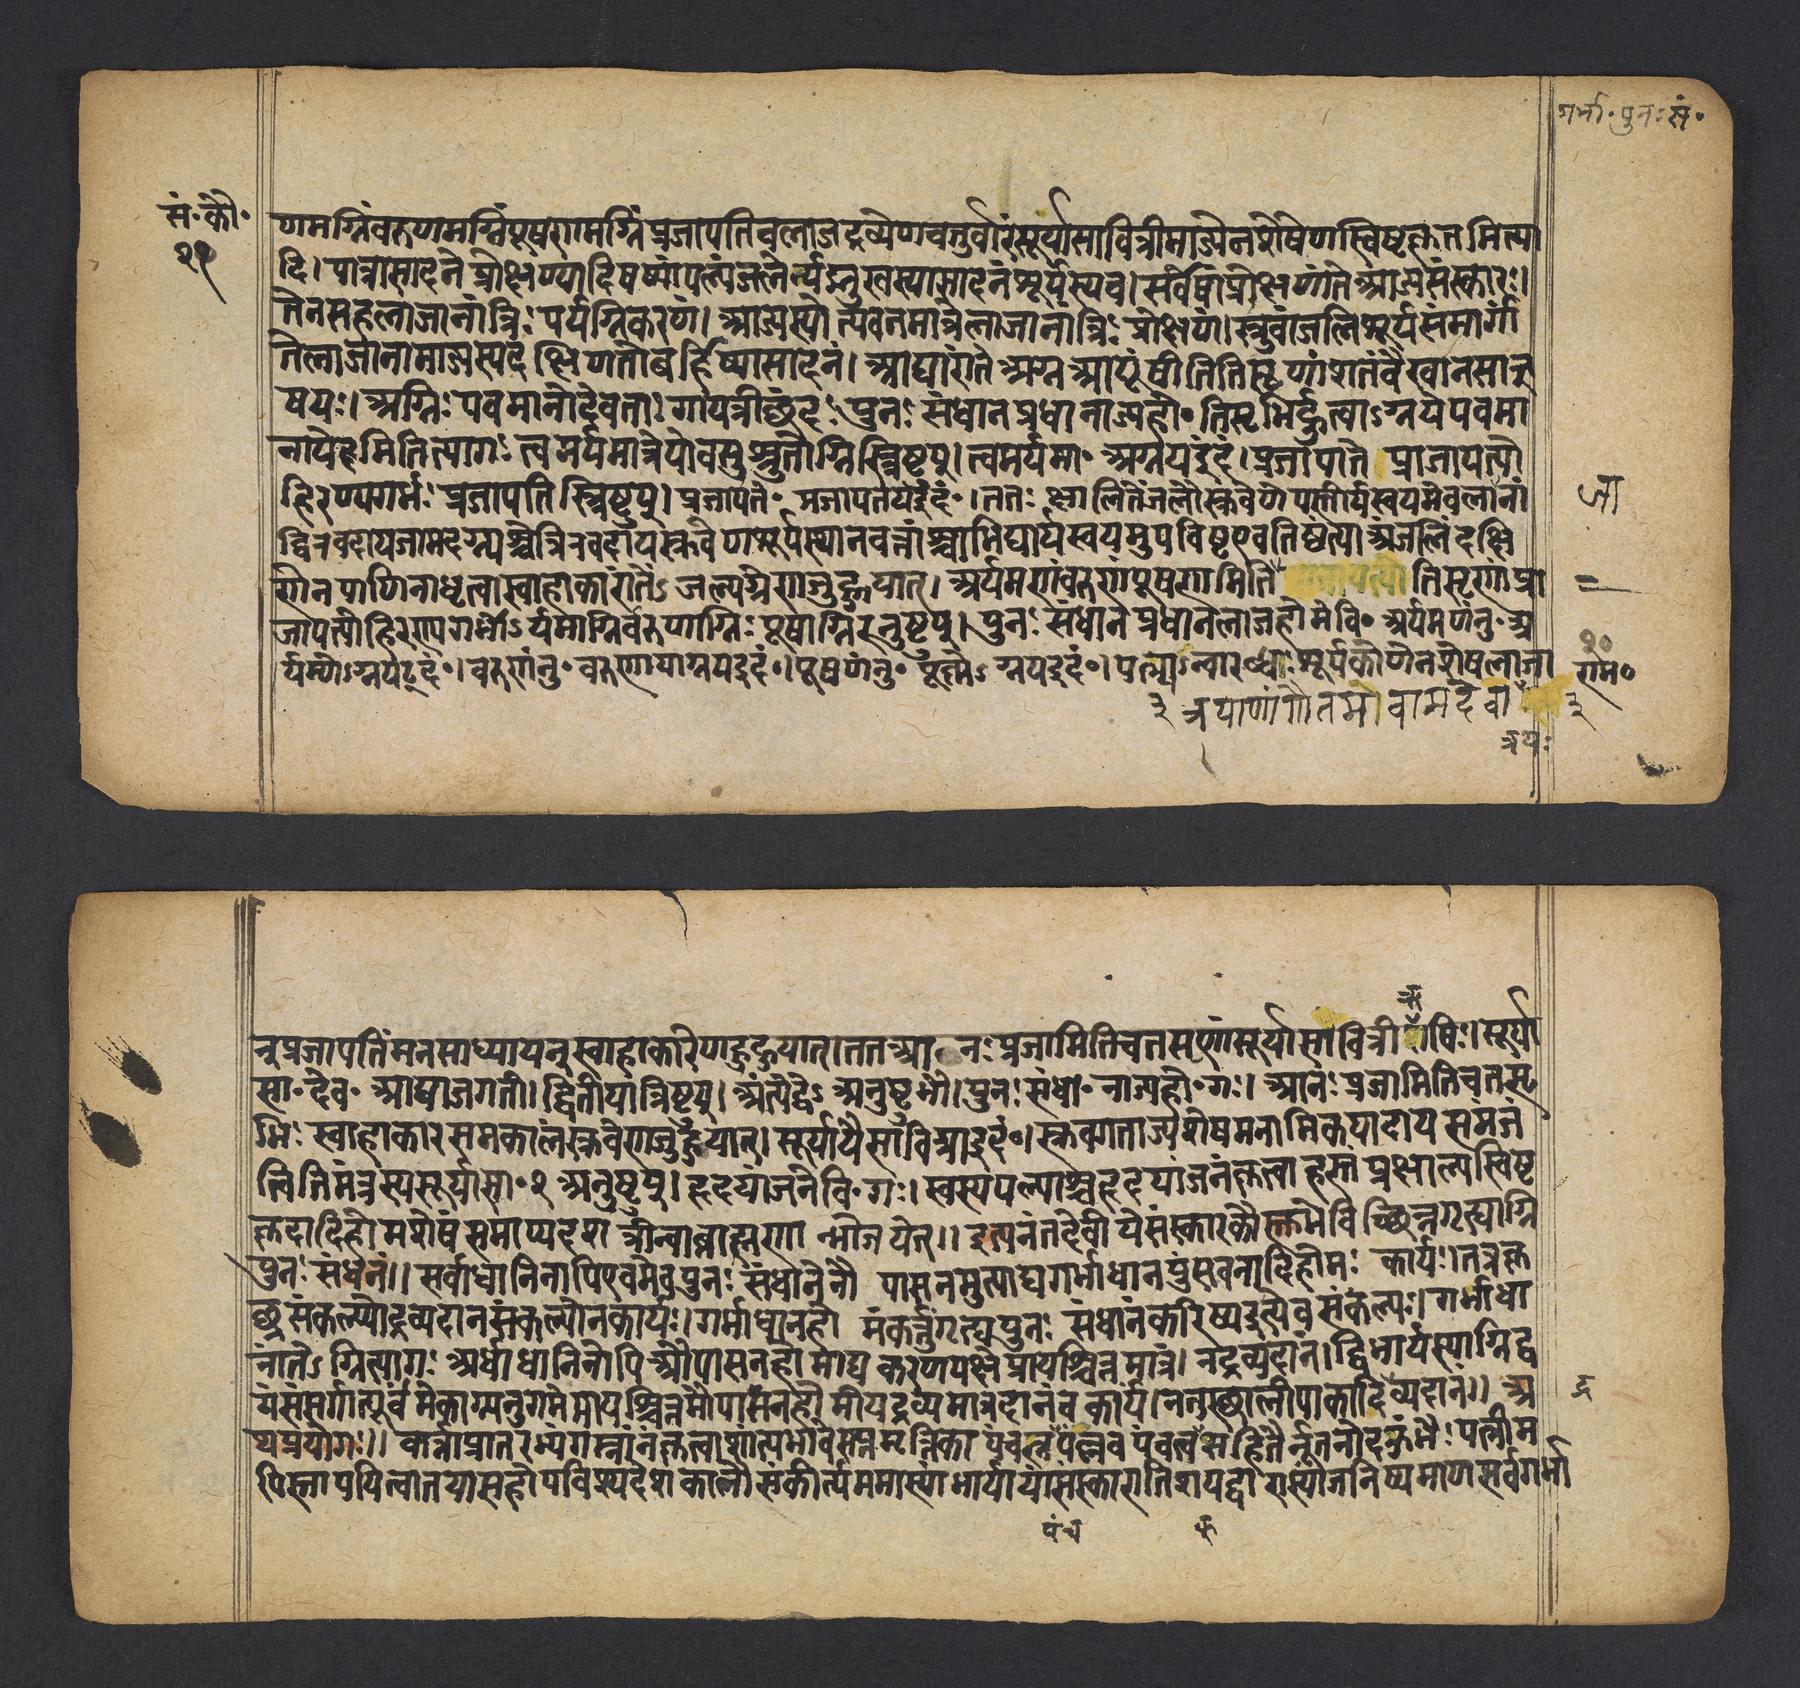 गर्भा॰पुनःसं॰
सं॰कौ॰
२१
णमग्निंवरुणमग्निंपूषणमग्निं प्रजापतिंचलाजद्रव्येणचतुर्वारंसूर्यासावित्रीमाज्येनशेषेणस्विष्टकृतमित्या
दि। पात्रासादने प्रोक्षण्यादिषण्णांपत्न्यंजलेर्न्यग्नुखस्यासादनंशूर्पस्यच। सर्वेषांप्रोक्षणांते आज्यसंस्कारः।
तेनसहलाजानांत्रिः पर्यग्निकरणं। आज्यस्योत्पवनमात्रंलाजानांत्रिः प्रोक्षणं। स्रुवांजलिशूर्पसंमार्गां
तेलाजानामाज्यस्यदक्षिणतोबर्हिष्यासादनं। आघारांते अग्न आयूंषीतितिसृणांशतंवैखानसाऋ
षयः। अग्निः पवमानोदेवता। गायत्रीछंदः पुनः संधानप्रधानाज्यहो॰ तिसृभिर्हुत्वाऽग्नयेपवमा
नायेदमितित्यागः त्वमर्यमात्रेयोवसुश्रुतोग्निस्त्रिष्टुप्। त्वमर्यमा॰ अग्नयइदं। प्रजापते प्राजापत्यो
हिरण्यगर्भः प्रजापतिस्त्रिष्टुप्। प्रजापते॰ प्रजापतयइदं॰। ततः क्षालितेंजलौस्रुवेणोपस्तीर्यस्वयमेवलाजानां
द्विरवदायजामदग्न्यश्चेत्त्रिरवदायस्रुवेणशूर्पस्थानवत्तांश्चाभिघार्यस्वयमुपविष्टएवतिष्ठंत्या अंजलिंदक्षि
णेनपाणिनाधृत्वास्वाहाकारांतेंऽजल्यग्रेणजुहुयात्। अर्यमणंवरुणंपूषणमिति तिसृणांप्रा
जापत्योहिरण्यगर्भोऽर्यमाग्निर्वरुणाग्निः पूषाग्निरनुष्टुप्। पुनः संधानप्रधानलाजहोमेवि॰ अर्यमणंनु॰ अ
र्यम्णेऽग्नयइदं॰। वरुणंनु॰ वरुणायाग्नयइदं॰। पूषणंनु॰ पूष्णेऽग्नयइदं॰। पत्न्याऽन्वारब्धः शूर्पकोणेनशेषलाजा
राम॰
३ त्रयाणांगौतमोवामदेवा ३
नुप्रजापतिंमनसाध्यायन्स्वाहाकारेणजुहुयात्। तत आनः प्रजामितिचतसृणांसूर्यासावित्री षिः। सूर्या
सा॰ देव॰ आद्याजगती। द्वितीयात्रिष्टुप्। अंत्येद्वे अनुष्टुभौ। पुनः संधा॰ नाज्यहो॰ गः। आनः प्रजामितिचतसृ
भिः स्वाहाकारसमकालंस्रुवेणजुहुयात्। सूर्यायैसावित्र्याइदं॰। स्रुवगताज्यशेषमनामिकयादायसमंजं
त्वितिमंत्रस्यसूर्यासा॰ २ अनुष्टुप्। हृदयांजनेवि॰ गः। स्वस्यपत्न्याश्चहृदयांजनंकृत्वा हस्तं प्रक्षाल्यस्विष्ट
कृदादिहोमशेषंसमाप्यदश त्रीन्वाब्राह्मणान्भोजयेत्॥ इत्यनंतदेवीयेसंस्कारकौस्तुभेविच्छिन्नगृह्याग्नि
पुनः संधानं॥ सर्वाधानिनापिएवमेवपुनः संधानेनौपासनमुत्पाद्यगर्भाधानपुंसवनादिहोमः कार्यः। तत्रकृ
च्छ्रसंकल्पोद्रव्यदानसंकल्पोनकार्यः। गर्भाधानहोमंकर्तुंगृह्यपुनः संधानंकरिष्यइत्येवसंकल्पः। गर्भाधा
नांतेऽग्नित्यागः अर्धाधानिनोपि औपासनहोमाद्यकरणपक्षे प्रायश्चित्तमात्रं। नद्रव्यदानं। द्विभार्यस्याग्निद्व
यसंसर्गात्पूर्वमेकाग्न्यनुगमेप्रायश्चित्तमौपासनहोमीयद्रव्यमात्रदानंचकार्यं। ननुस्थालीपाकादिव्यदानं॥ अ
द्र
थप्रयोगः॥ कर्त्राप्रातरभ्यंगस्नानंकृत्वाशोत्यर्भावेसप्तमृत्तिकापंचरत्नपल्लवपंचत्वसहितैर्नूतनोदकुंभैः पत्नीम
पिस्नापयित्वातयासहोपविश्यदेशकालौसंकीर्त्यममास्यांभार्यायांसंस्कारातिशयद्वारास्यांजनिष्यमाणसर्वगर्भा
पंच